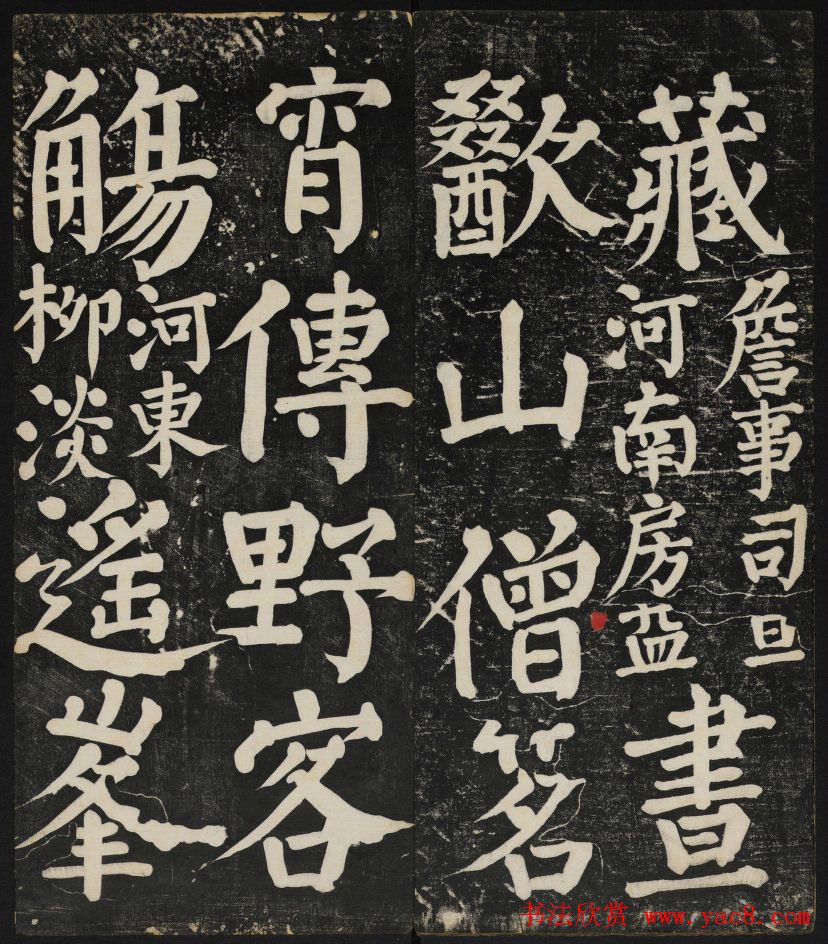 藏
詹事司旦
河南房益
晝
歠山僧茗
宵傳野客
觴
河東
柳淡
遙峯
书法欣赏 www.yac8.com